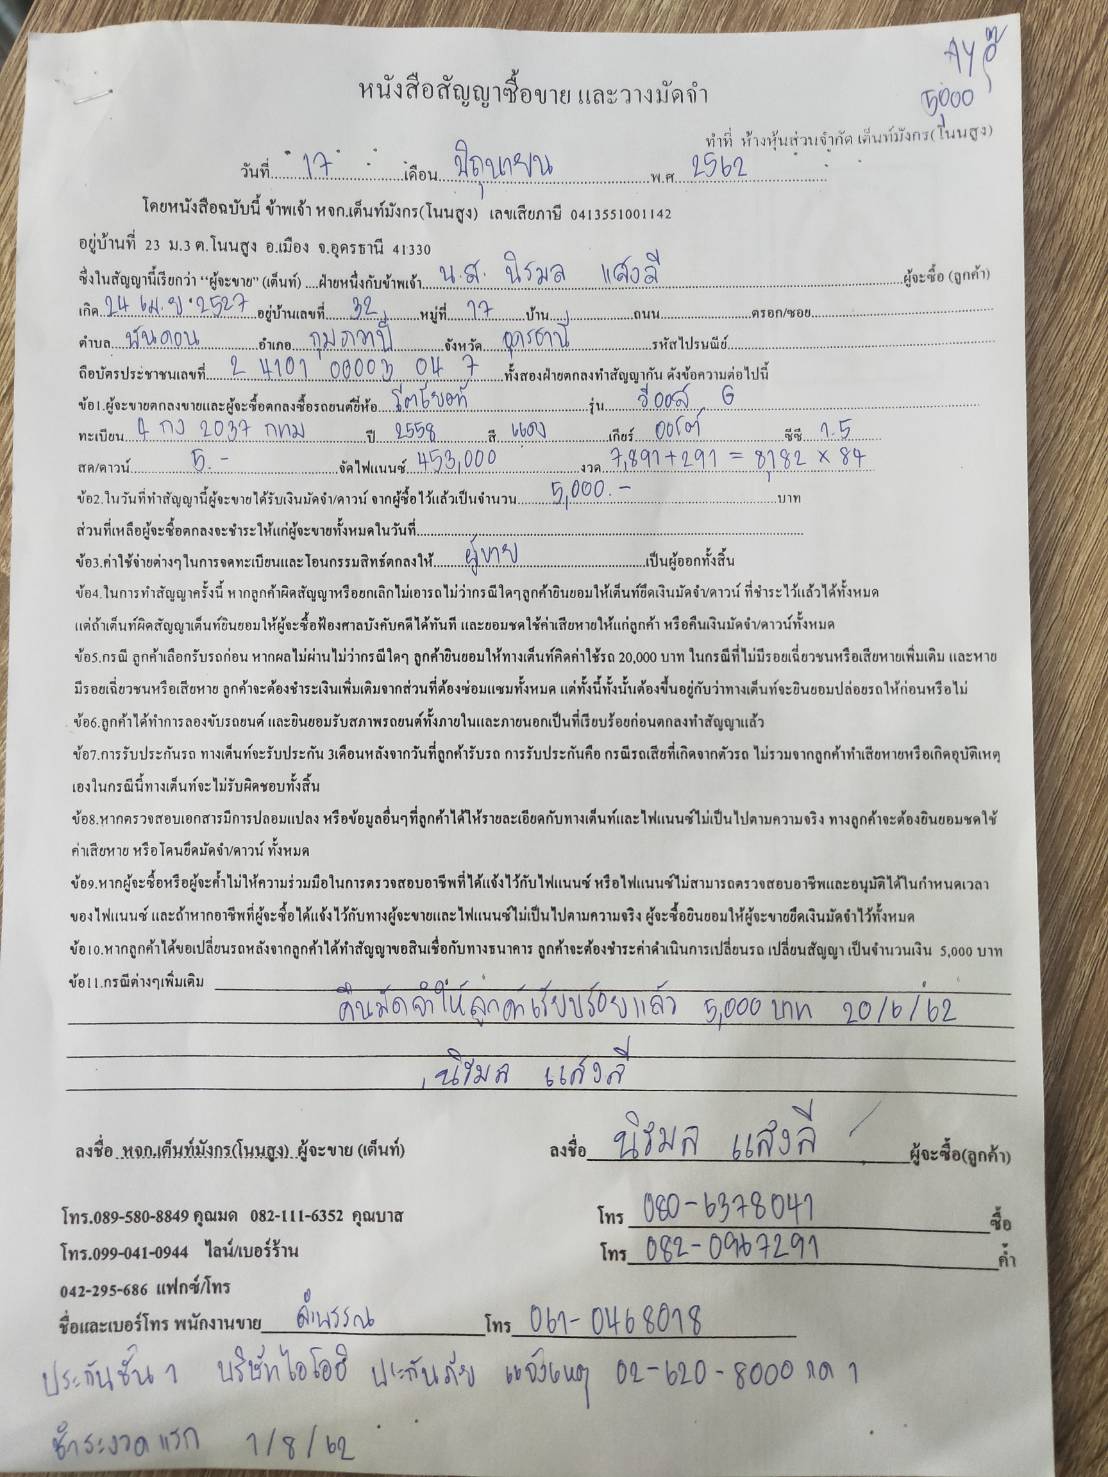 AY
5,000
หนังสือสัญญาซื้อขาย และวางมัดจำ
ทำที่ ห้างหุ้นส่วนจำกัด เต็นท์มังกร(โนนสูง)
วันที่ 17 เดือน มิถุนายน พ.ศ 2562
โดยหนังสือฉบับนี้ ข้าพเจ้า หจก.เต็นท์มังกร(โนนสูง) เลขเสียภาษี 0413551001142
อยู่บ้านที่ 23 ม.3 ต.โนนสูง อ.เมือง จ.อุดรธานี 41330
ซึ่งในสัญญานี้เรียกว่า "ผู้จะขาย" (เต็นท์) ....ฝ่ายหนึ่งกับข้าพเจ้า น.ส. นิรมล แสงลี ผู้จะซื้อ (ลูกค้า)
เกิด 24 เม.ย. 2527 อยู่บ้านเลขที่ 32 หมู่ที่ 17 บ้าน ถนน ตรอก/ซอย
ตำบล พันดอน อำเภอ กุมภวาปี จังหวัด อุดรธานี รหัสไปรษณีย์
ถือบัตรประชาชนเลขที่ 2 4101 00003 04 7 ทั้งสองฝ่ายตกลงทำสัญญากัน ดังข้อความต่อไปนี้
ข้อ1.ผู้จะขายตกลงขายและผู้จะซื้อตกลงซื้อรถยนต์ยี่ห้อ โตโยต้า รุ่น วีออส G
ทะเบียน 4 กง 2037 กทม ปี 2558 สี แดง เกียร์ ออโต้ ซีซี 1.5
สด/ดาวน์ 5.- จัดไฟแนนซ์ 453,000 งวด 7,891+291 = 8,182 x 84
ข้อ2.ในวันที่ทำสัญญานี้ผู้จะขายได้รับเงินมัดจำ/ดาวน์ จากผู้ซื้อไว้แล้วเป็นจำนวน 5,000.- บาท
ส่วนที่เหลือผู้จะซื้อตกลงจะชำระให้แก่ผู้จะขายทั้งหมดในวันที่
ข้อ3.ค่าใช้จ่ายต่างๆในการจดทะเบียนและโอนกรรมสิทธ์ตกลงให้ ผู้ขาย เป็นผู้ออกทั้งสิ้น
ข้อ4.ในการทำสัญญาครั้งนี้ หากลูกค้าผิดสัญญาหรือยกเลิกไม่เอารถไม่ว่ากรณีใดๆลูกค้ายินยอมให้เต็นท์ยึดเงินมัดจำ/ดาวน์ ที่ชำระไว้แล้วได้ทั้งหมด
แต่ถ้าเต็นท์ผิดสัญญาเต็นท์ยินยอมให้ผู้จะซื้อฟ้องศาลบังคับคดีได้ทันที และยอมชดใช้ค่าเสียหายให้แก่ลูกค้า หรือคืนเงินมัดจำ/ดาวน์ทั้งหมด
ข้อ5.กรณี ลูกค้าเลือกรับรถก่อน หากผลไม่ผ่านไม่ว่ากรณีใดๆ ลูกค้ายินยอมให้ทางเต็นท์คิดค่าใช้รถ 20,000 บาท ในกรณีที่ไม่มีรอยเฉี่ยวชนหรือเสียหายเพิ่มเติม และหาย
มีรอยเฉี่ยวชนหรือเสียหาย ลูกค้าจะต้องชำระเงินเพิ่มเติมจากส่วนที่ต้องซ่อมแซมทั้งหมด แต่ทั้งนี้ทั้งนั้นต้องขึ้นอยู่กับว่าทางเต็นท์จะยินยอมปล่อยรถให้ก่อนหรือไม่
ข้อ6.ลูกค้าได้ทำการลองขับรถยนต์ และยินยอมรับสภาพรถยนต์ทั้งภายในและภายนอกเป็นที่เรียบร้อยก่อนตกลงทำสัญญาแล้ว
ข้อ7.การรับประกันรถ ทางเต็นท์จะรับประกัน 3เดือนหลังจากวันที่ลูกค้ารับรถ การรับประกันคือ กรณีรถเสียที่เกิดจากตัวรถ ไม่รวมจากลูกค้าทำเสียหายหรือเกิดอุบัติเหตุ
เองในกรณีนี้ทางเต็นท์จะไม่รับผิดชอบทั้งสิ้น
ข้อ8.หากตรวจสอบเอกสารมีการปลอมแปลง หรือข้อมูลอื่นๆที่ลูกค้าได้ให้รายละเอียดกับทางเต็นท์และไฟแนนซ์ไม่เป็นไปตามความจริง ทางลูกค้าจะต้องยินยอมชดใช้
ค่าเสียหาย หรือโดนยึดมัดจำ/ดาวน์ ทั้งหมด
ข้อ9.หากผู้จะซื้อหรือผู้จะค้ำไม่ให้ความร่วมมือในการตรวจสอบอาชีพที่ได้แจ้งไว้กับไฟแนนซ์ หรือไฟแนนซ์ไม่สามารถตรวจสอบอาชีพและอนุมัติได้ในกำหนดเวลา
ของไฟแนนซ์ และถ้าหากอาชีพที่ผู้จะซื้อได้แจ้งไว้กับทางผู้จะขายและไฟแนนซ์ไม่เป็นไปตามความจริง ผู้จะซื้อยินยอมให้ผู้จะขายยึดเงินมัดจำไว้ทั้งหมด
ข้อ10.หากลูกค้าได้ขอเปลี่ยนรถหลังจากลูกค้าได้ทำสัญญาขอสินเชื่อกับทางธนาคาร ลูกค้าจะต้องชำระค่าดำเนินการเปลี่ยนรถ เปลี่ยนสัญญา เป็นจำนวนเงิน 5,000 บาท
ข้อ11.กรณีต่างๆเพิ่มเติม
คืนมัดจำให้ลูกค้าเรียบร้อยแล้ว 5,000 บาท 20/6/62
นิรมล แสงลี
ลงชื่อ หจก.เต็นท์มังกร(โนนสูง) ผู้จะขาย (เต็นท์) ลงชื่อ นิรมล แสงลี ผู้จะซื้อ(ลูกค้า)
โทร.089-580-8849 คุณมด 082-111-6352 คุณบาส โทร 080-6378041 ซื้อ
โทร.099-041-0944 ไลน์/เบอร์ร้าน โทร 082-0967291 ค้ำ
042-295-686 แฟกซ์/โทร
ชื่อและเบอร์โทร พนักงานขาย ลำพรรณ โทร 061-0468018
ประกันชั้น 1 บริษัทไอโออิ ประกันภัย แจ้งเหตุ 02-620-8000 กด 1
ชำระงวดแรก 1/8/62